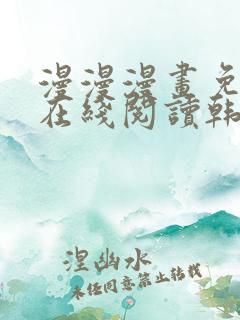 漫漫漫畫免
在綫閱讀韩
涅幽水
未任同意禁止转载